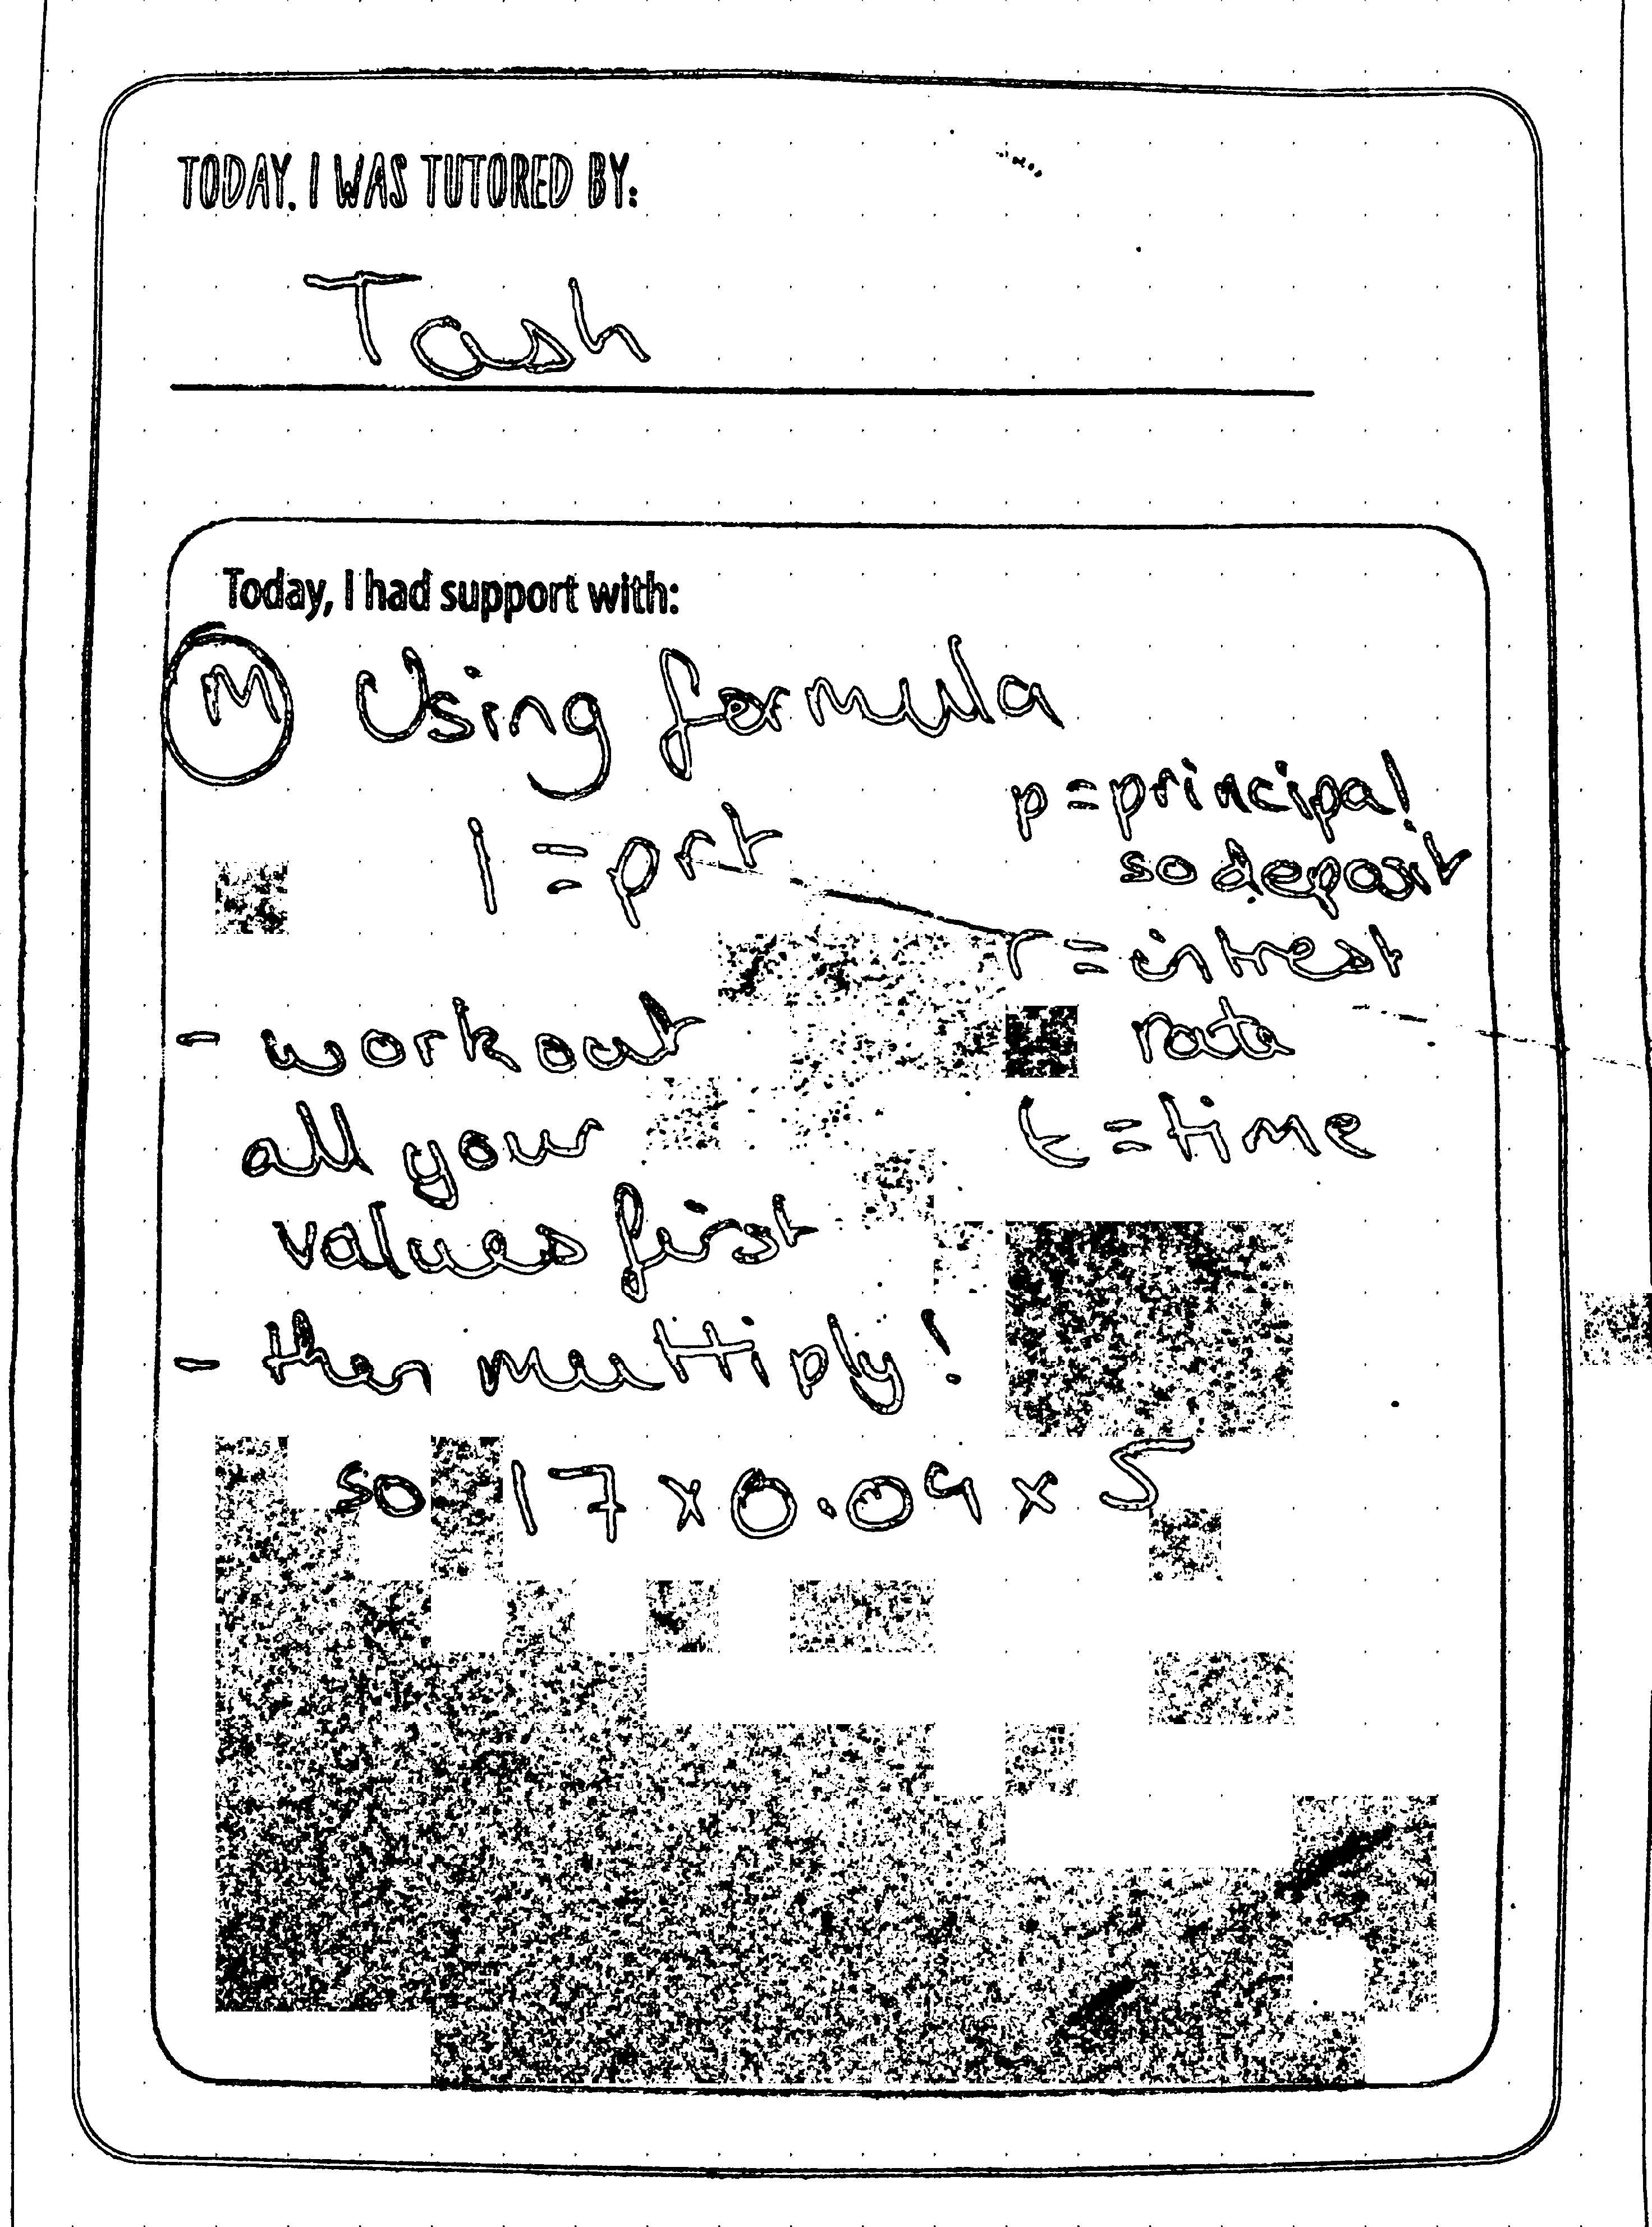 TODAY, I WAS TUTORED BY:
Tash
Today, I had support with:
M Using formula
I = prt
p = principal
so deposit
r = intrest
rate
t = time
- work out
all your
values first
- then multiply!
so 17 x 0.04 x 5